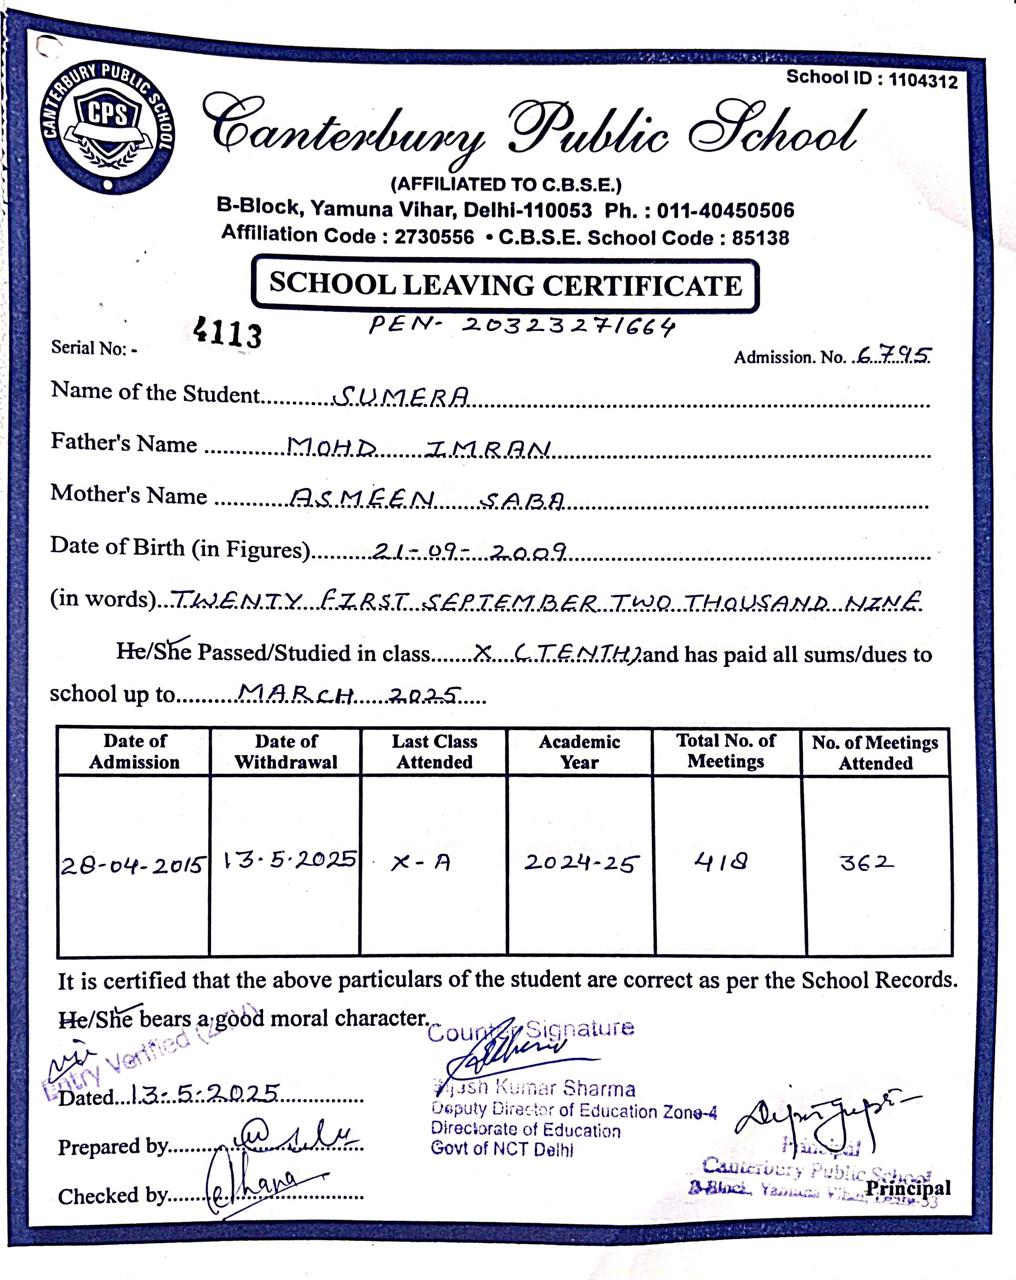 School ID : 1104312
CANTERBURY PUBLIC SCHOOL
CPS
Canterbury Public School
(AFFILIATED TO C.B.S.E.)
B-Block, Yamuna Vihar, Delhi-110053 Ph. : 011-40450506
Affiliation Code : 2730556 • C.B.S.E. School Code : 85138
SCHOOL LEAVING CERTIFICATE
PEN- 20323271664
Serial No: - 4113
Admission. No. 6795
Name of the Student SUMERA
Father's Name MOHD IMRAN
Mother's Name ASMEEN SABA
Date of Birth (in Figures) 21-09-2009
(in words) TWENTY FIRST SEPTEMBER TWO THOUSAND NINE
He/She Passed/Studied in class X (TENTH) and has paid all sums/dues to
school up to MARCH 2025
Date of Admission Date of Withdrawal Last Class Attended Academic Year Total No. of Meetings No. of Meetings Attended
28-04-2015 13.5.2025 X-A 2024-25 418 362
It is certified that the above particulars of the student are correct as per the School Records.
He/She bears a good moral character.
Entry Verified
Counter Signature
Dated 13.5.2025
Kumar Sharma
Deputy Director of Education Zone-4
Directorate of Education
Govt of NCT Delhi
Prepared by
Checked by
Principal
Canterbury Public School
B-Block, Yamuna Vihar, Delhi-53
Principal